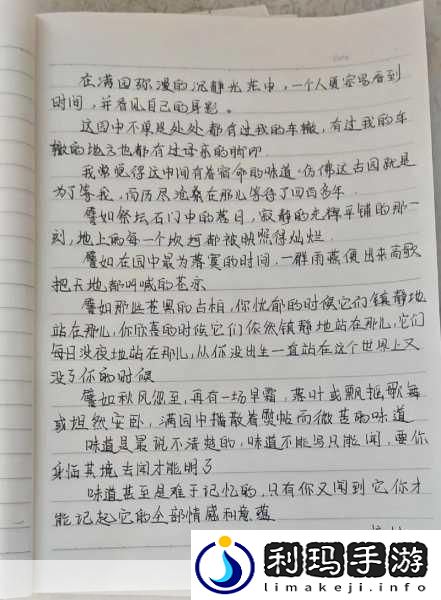 在满园弥漫的沉静光芒中，一个人更容易看到
时间，并看见自己的身影。
这园中不单是处处都有过我的车辙，有过我的车
辙的地方也都有过母亲的脚印
我常觉得这中间有着宿命的味道：仿佛这古园就是
为了等我，而历尽沧桑在那儿等待了四百多年
譬如祭坛石门中的落日，寂静的光辉平铺的那一
刻，地上的每一个坎坷都被映照得灿烂
譬如在园中最为落寞的时间，一群雨燕便出来高歌
把天地都叫喊的苍凉
譬如那些苍黑的古柏，你忧郁的时候它们镇静地
站在那儿，你欣喜的时候它们依然镇静地站在那儿，它们
每日没夜地站在那儿，从你没出生一直站在这个世界上又
没了你的时候
譬如秋风忽至，再有一场早霜，落叶或飘摇歌舞
或坦然安卧，满园中播散着熨帖而微苦的味道
味道是最说不清楚的，味道不能写只能闻，要你
身临其境去闻才能明了
味道甚至是难于记忆的，只有你又闻到它你才
能记起它的全部情感和意蕴
利玛手游
limakeji.com